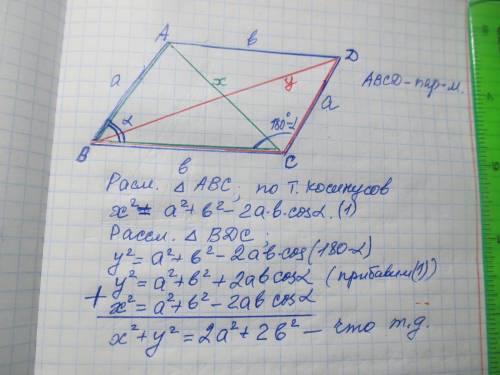 A
в
D
a
x
y
ABCD-пар-м.
α
180°-α
a
B
в
C
Расм. △ ABC; по Т. косинусов
x² = a²+в²-2a·в·cosα. (1)
Рассм. △ BDC;
y²= a²+в²-2aв·cos(180-α)
y²= a²+в²+2aв cosα (прибавим (1))
+ x²= a²+в²-2aв cosα
x²+y²=2a²+2в² - что т.д.